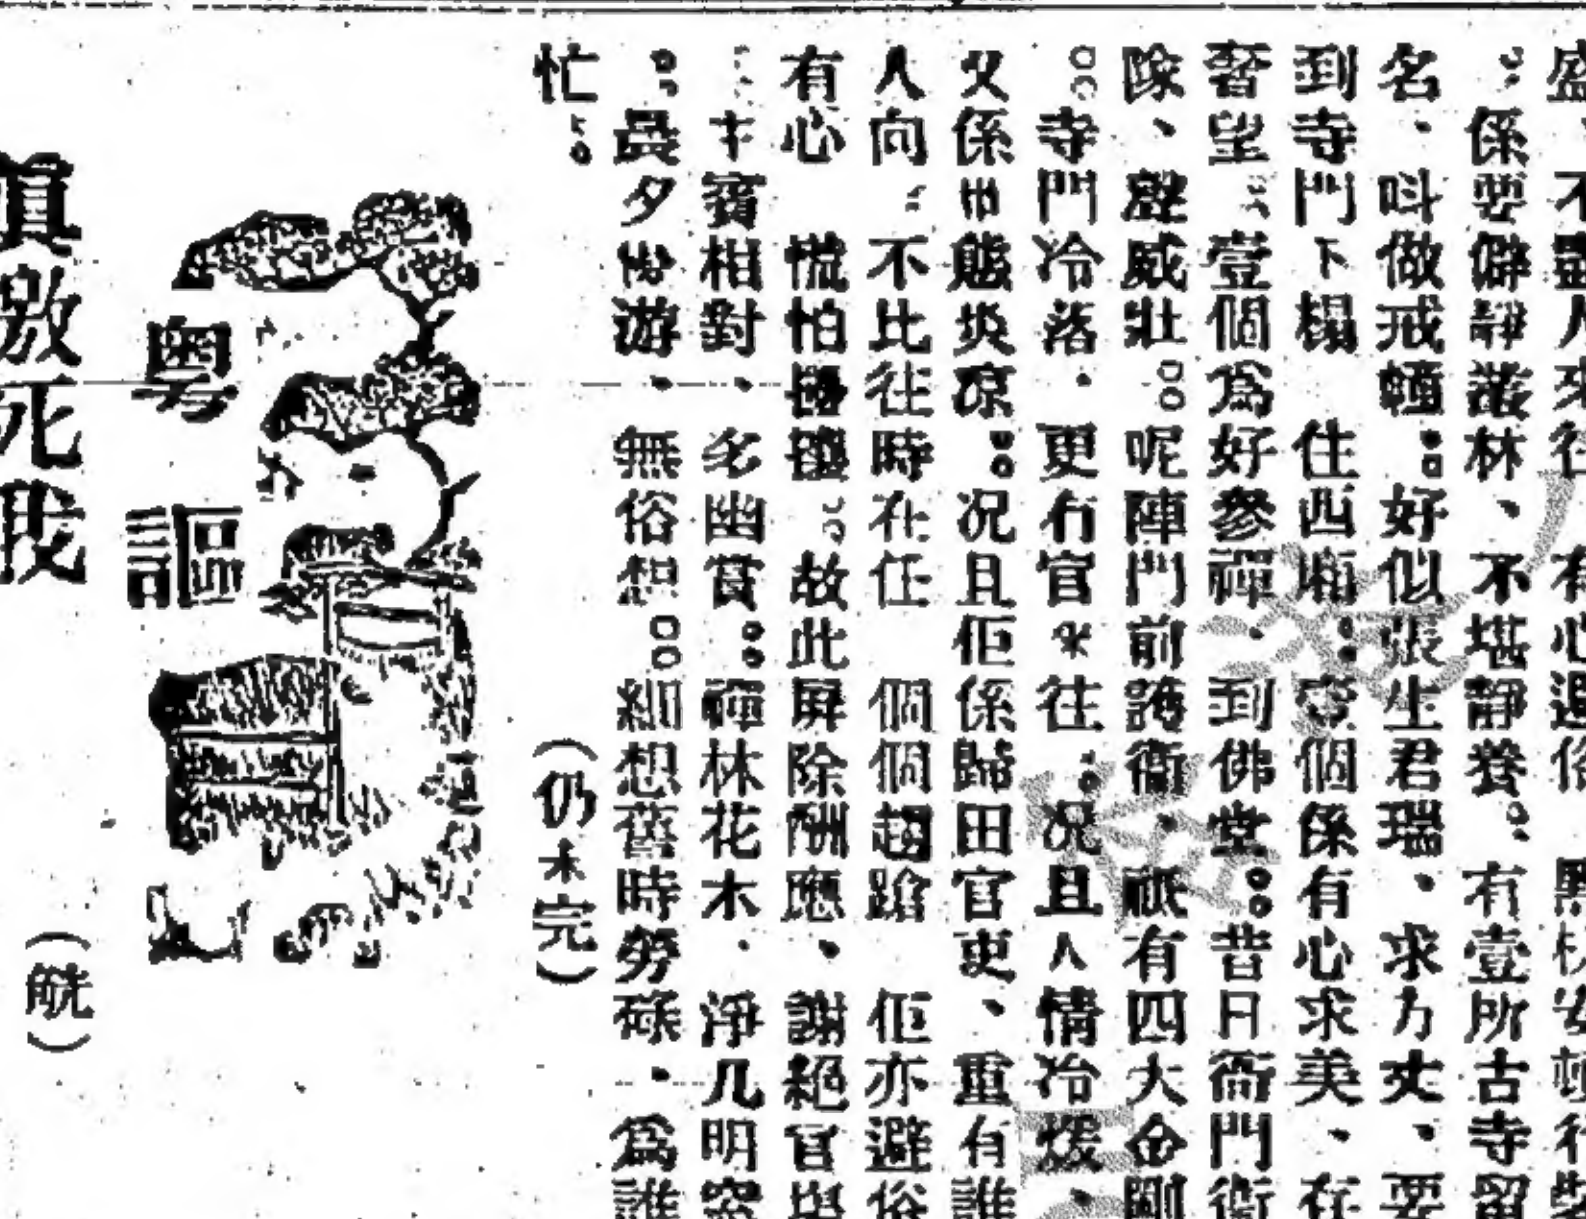 盛、不　人來往　有心避俗　　安頓行
。係要僻靜叢林、不堪靜養。有壹所古寺留
名、叫做戒幢。好似張生君瑞、求方丈、要
到寺門下榻　住西廂。個係有心求美、在
奢望。壹個為好參禪、到佛堂。昔日衙門衛
隊、聲威壯。呢陣門前護衛、祇有四大金剛
。寺門冷落、更冇官來往。況且人情冷煖、
又係世態炎凉。況且佢係歸田官吏、重有誰
人向。不比往時在任　個個趨蹌　佢亦避俗
有心　慌怕　　。故此屏除酬應、謝絕官
賓相對、幽賞。禪林花木、淨几明窓
。晨夕優游、無俗想。細想舊時勞碌、為誰
忙。　（仍未完）
粵謳
真激死我　（皝）